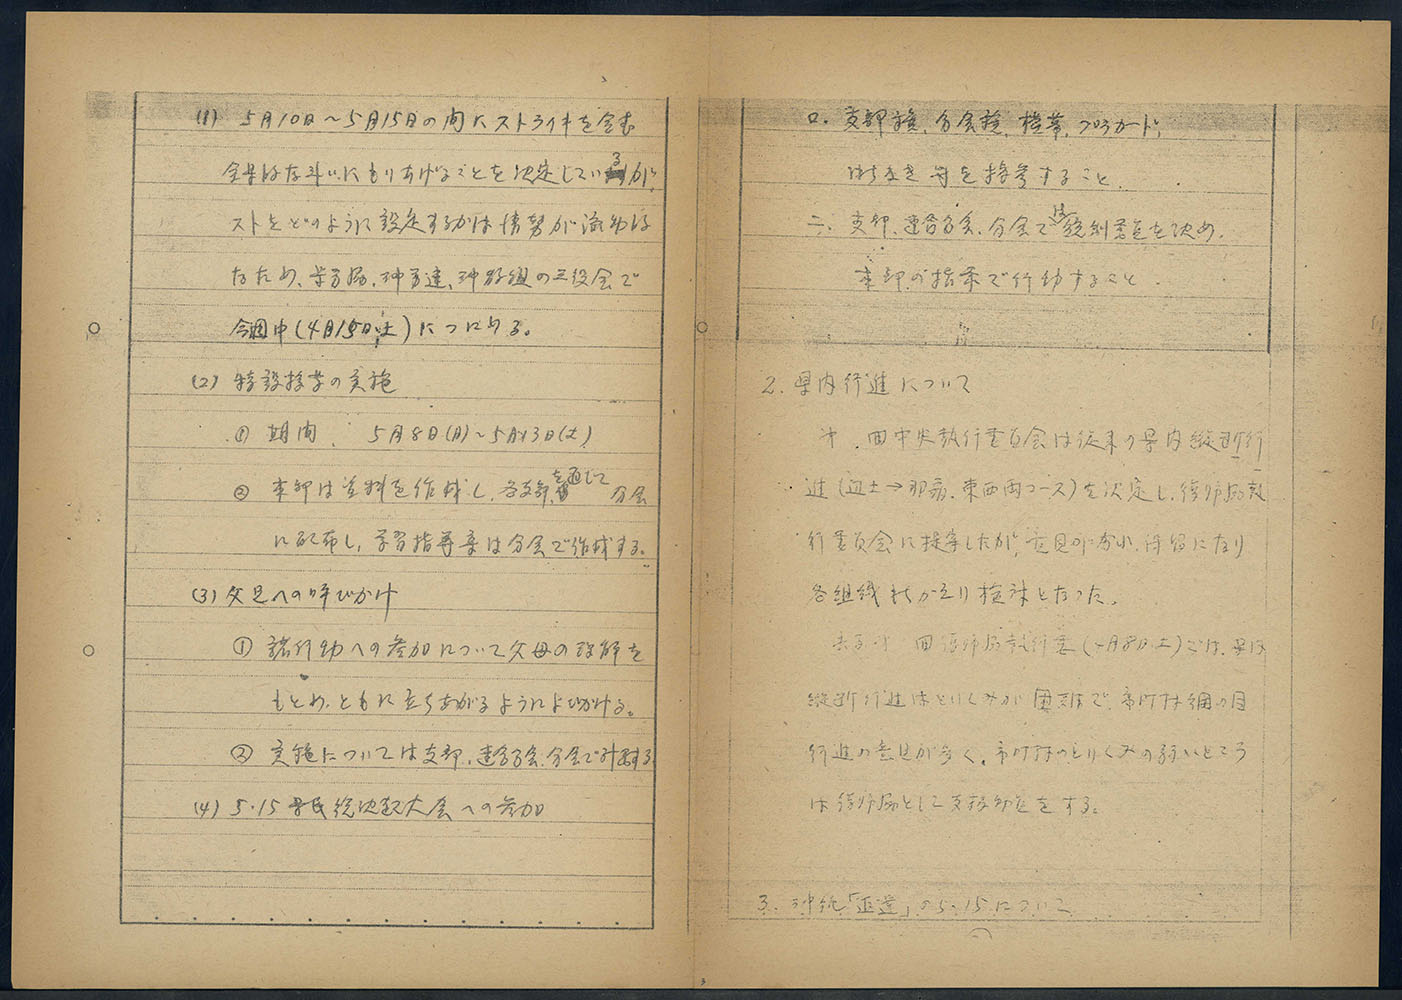 (1) 5月10日〜5月15日の間にストライキを含む
全県的な斗いにもりあげることを決定しているが、
ストをどのように設定するかは情勢が流動的
なため、県労協、沖官連、沖教組の三役会で
今週中(4月15日、土)につめる。
(2) 特設授業の実施
① 期間、5月8日(月)〜5月13日(土)
② 本部は資料を作成し、各支部を通じて分会
に配布し、学習指導案は分会で作成する。
(3) 父兄への呼びかけ
① 諸行動への参加について父母の理解を
もとめ、ともに立ちあがるようによびかける。
② 実施については支部、連合分会、分会で計画する
(4) 5.15県民総決起大会への参加
ロ. 支部旗、分会旗、横幕、プラカード、
はちまき等を携帯すること.
二、支部、連合分会、分会では統制責任を決め、
本部の指示で行動すること.
2. 県内行進について
才 回中央執行委員会は従来の県内縦断行
進(辺土→那覇、東西両コース)を決定し、復帰協執
行委員会に提案したが、意見が分れ、保留になり
各組織もちかえり検討となった。
才 回復帰協執行委(4月8日土)では、県内
縦断行進はとりくみが困難で、市町村網の目
行進の意見が多く、市町村のとりくみの弱いところ
は復帰協として支援動員をする。
3. 沖縄「返還」の5.15について